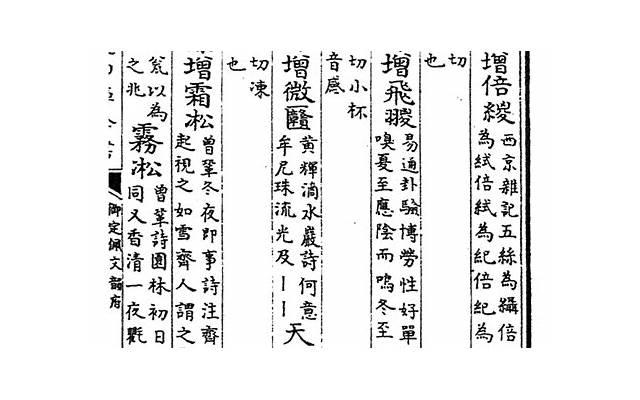 增倍緵
西京雜記五絲為䌰倍
為緎倍緎為紀倍紀為
切
也
增飛翪
易通卦驗博勞性好單
嗅夏至應陰而鳴冬至
切小杯
音
增微
黄輝滴水巖詩何意
牟尼珠流光及丨丨
天
切凍
也
增霜凇
曾鞏冬夜即事詩注齊
起視之如雪齊人謂之
瓮以為
之兆
霧凇
曾鞏詩園林初日
同又香清一夜氍
御定佩文韻府